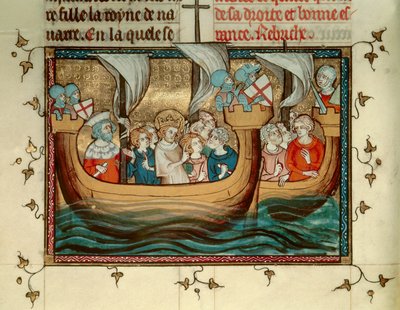 re fille la royne de na
uarre. En la quele se
de sa droite et bonne et
tance. Rebriche